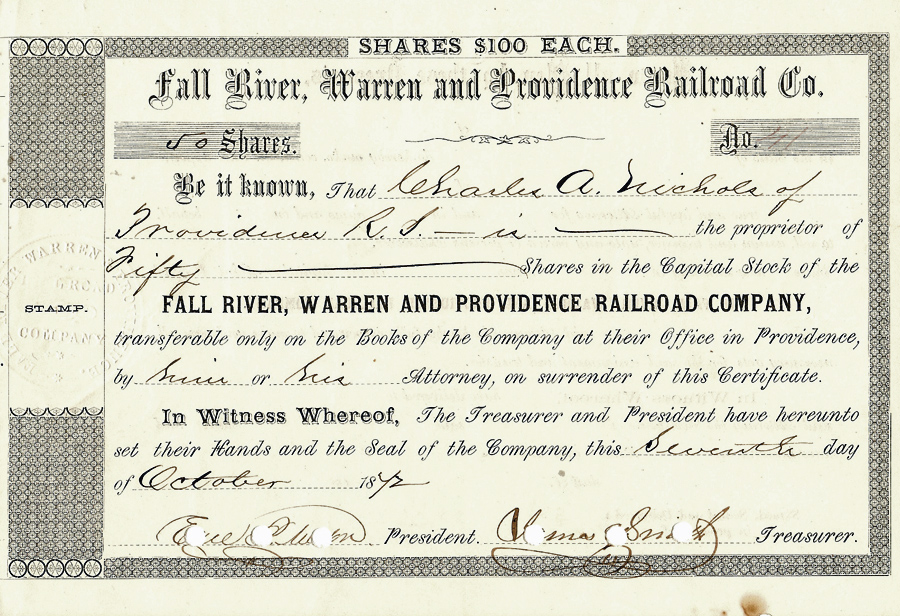 SHARES $100 EACH.
Fall River, Warren and Providence Railroad Co.
50 Shares. No. 41
Be it known, That Charles A. Nichols of
Providence R. I. — is — the proprietor of
Fifty — Shares in the Capital Stock of the
FALL RIVER, WARREN AND PROVIDENCE RAILROAD COMPANY,
transferable only on the Books of the Company at their Office in Providence,
by him or his Attorney, on surrender of this Certificate.
In Witness Whereof, The Treasurer and President have hereunto
set their Hands and the Seal of the Company, this Seventh day
of October 1872
President. Treasurer.
STAMP.
WARREN
COMPANY